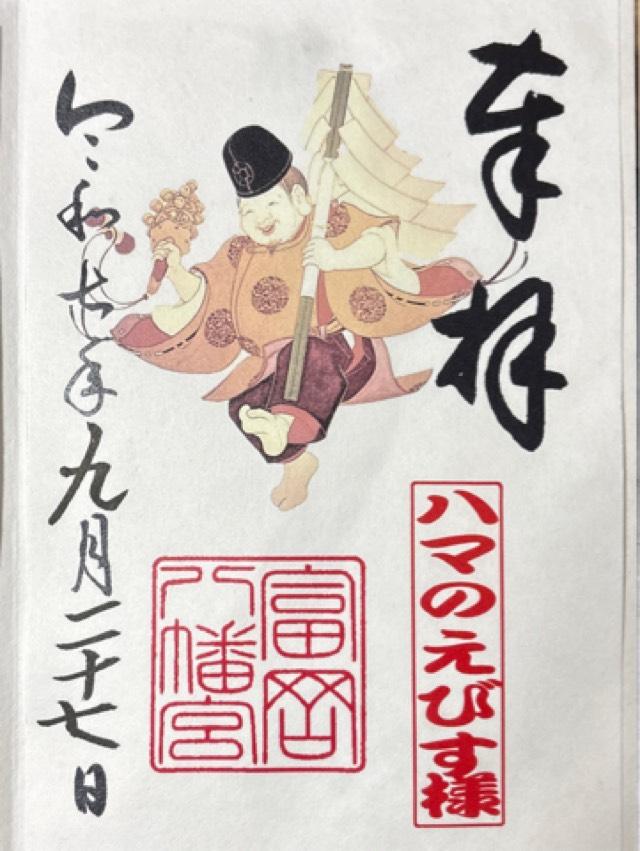 奉拝
ハマのえびす様
富岡
八幡宮
令和七年九月二十七日